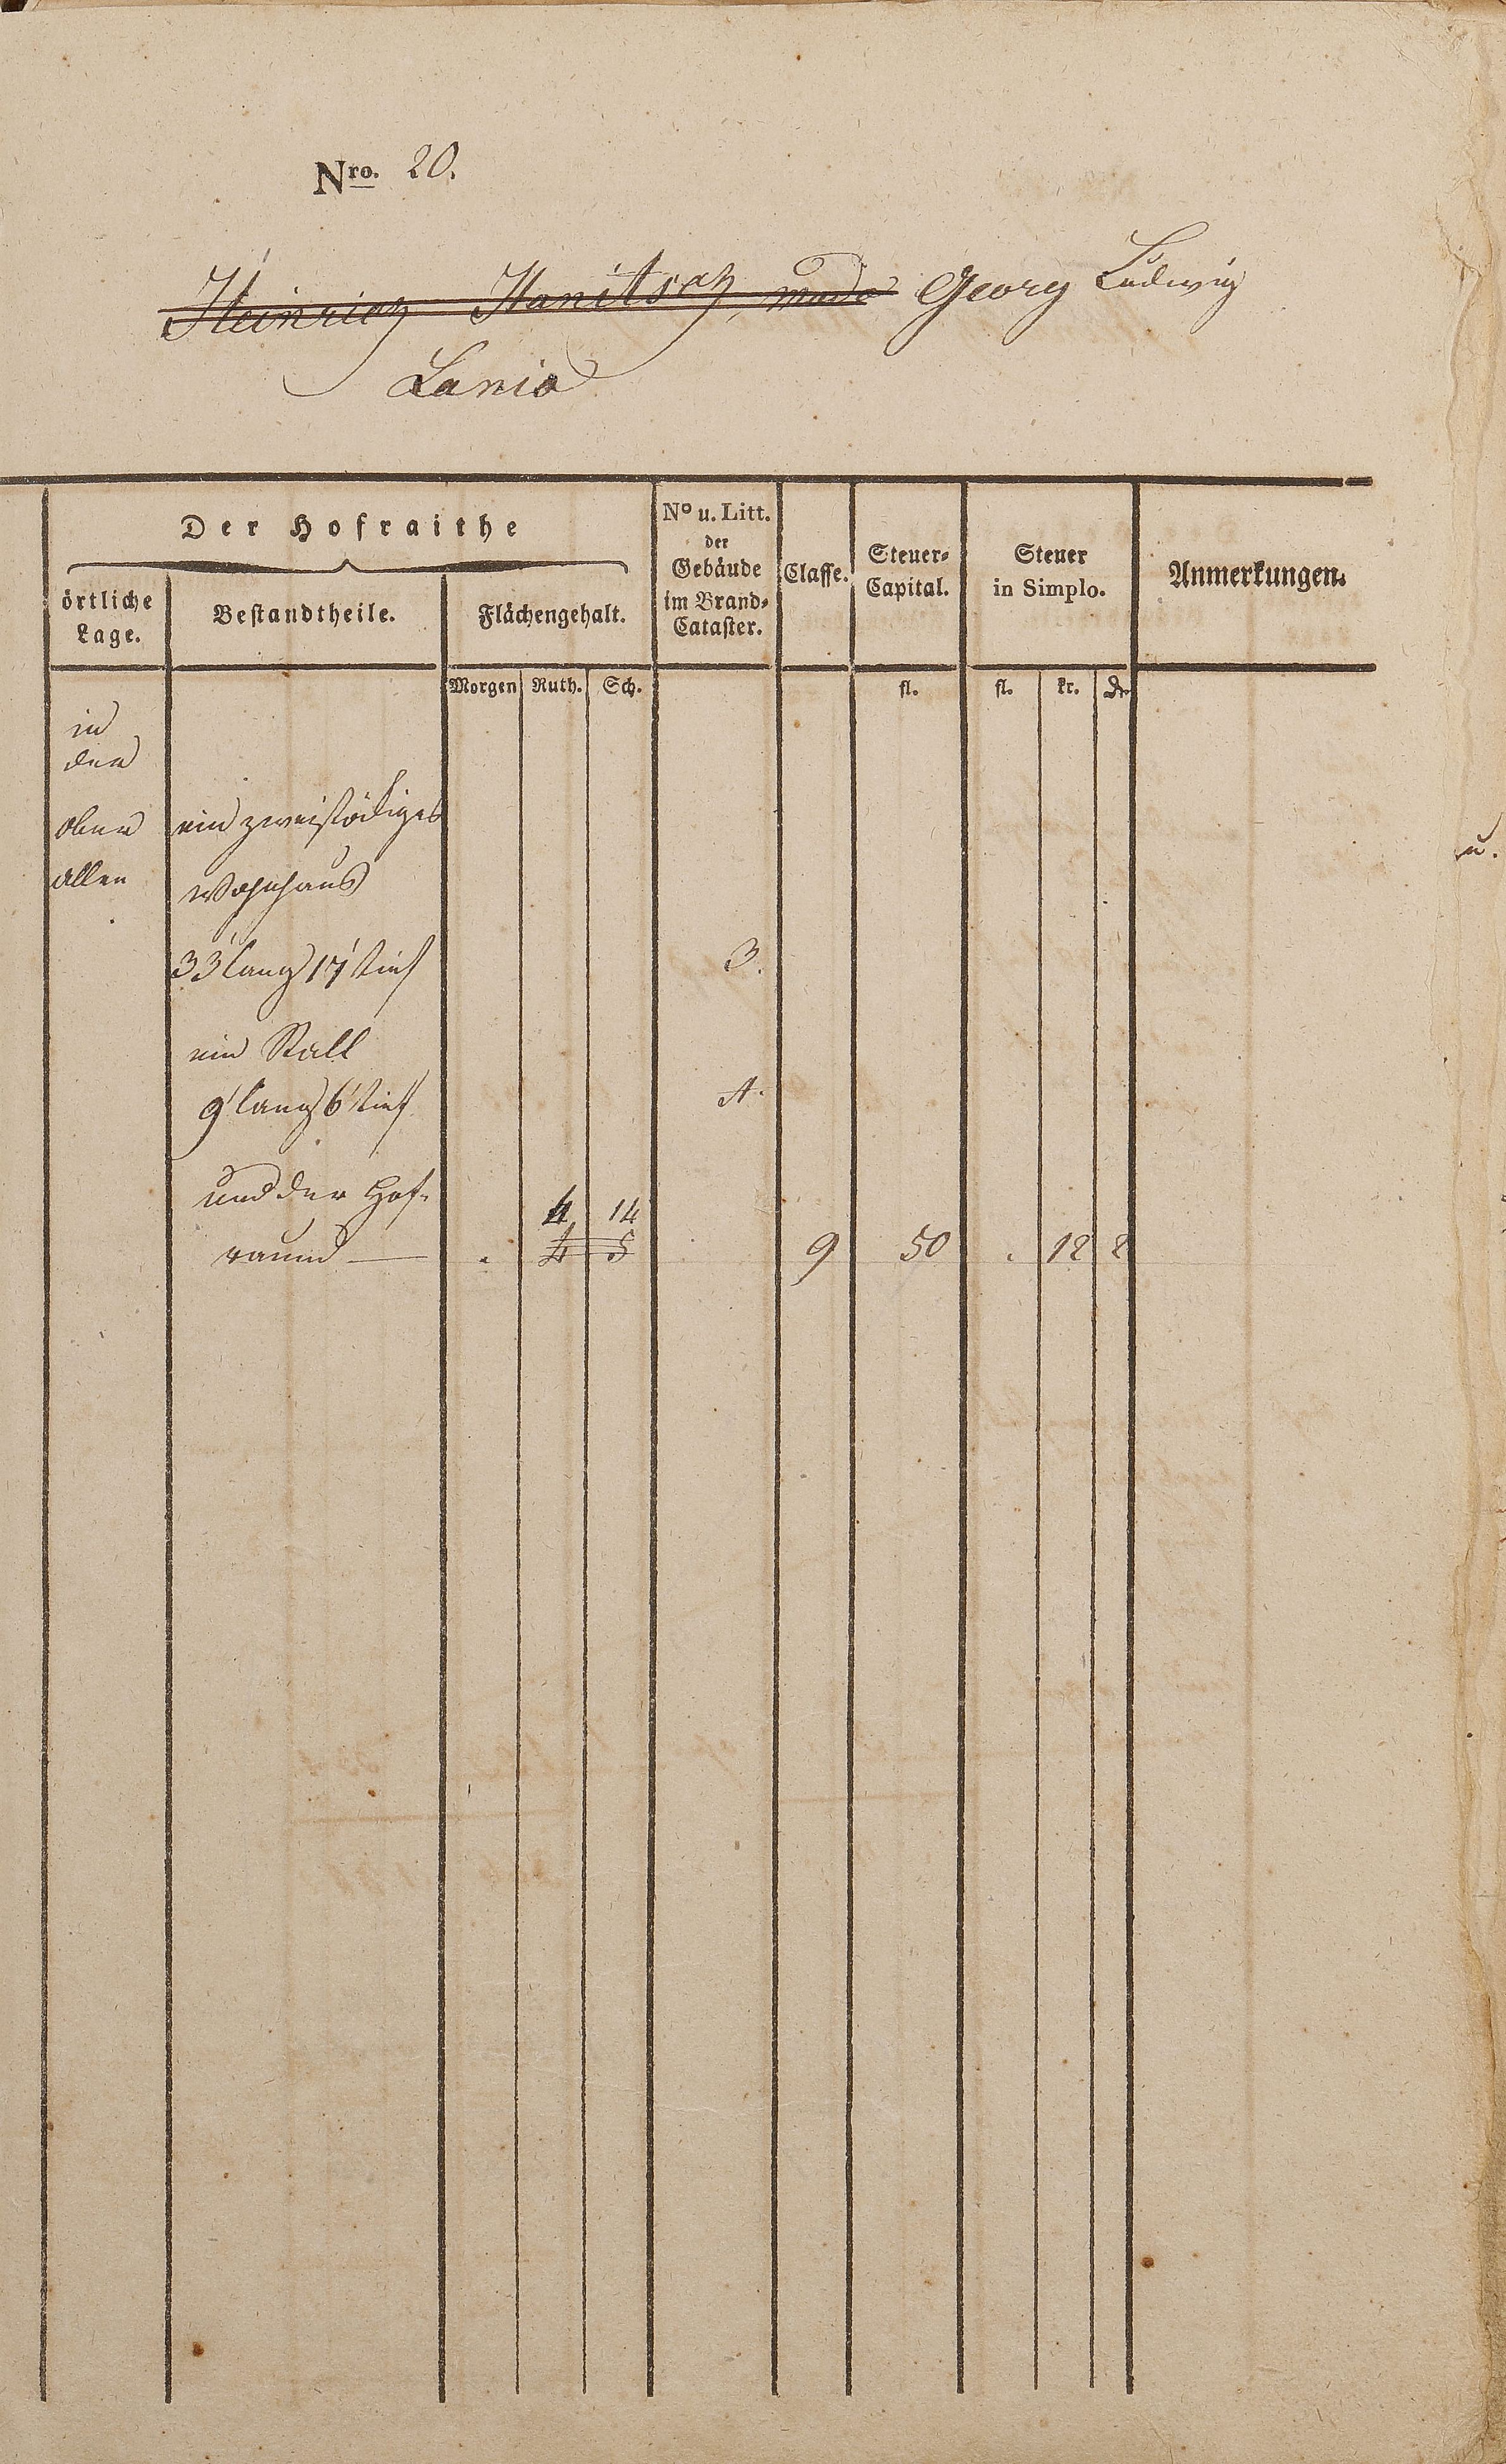 Nro. 20.
Heinrich Hanitsch, modo Georg Ludwig
Lanio
Der Hofraithe
örtliche Lage.
Bestandtheile.
Flächengehalt.
No u. Litt. der Gebäude im Brand-Cataster.
Classe.
Steuer-Capital.
Steuer in Simplo.
Anmerkungen.
Morgen Ruth. Sch. fl. fl. kr. Dr
in
der
ober ein zweistöckiges
allee Wohnhaus
33' lang 17' tief 3.
ein Stall
9' lang 6' tief A.
und der Hof-
4 14
raum — . 4 5 9 50 . 12 2
u.